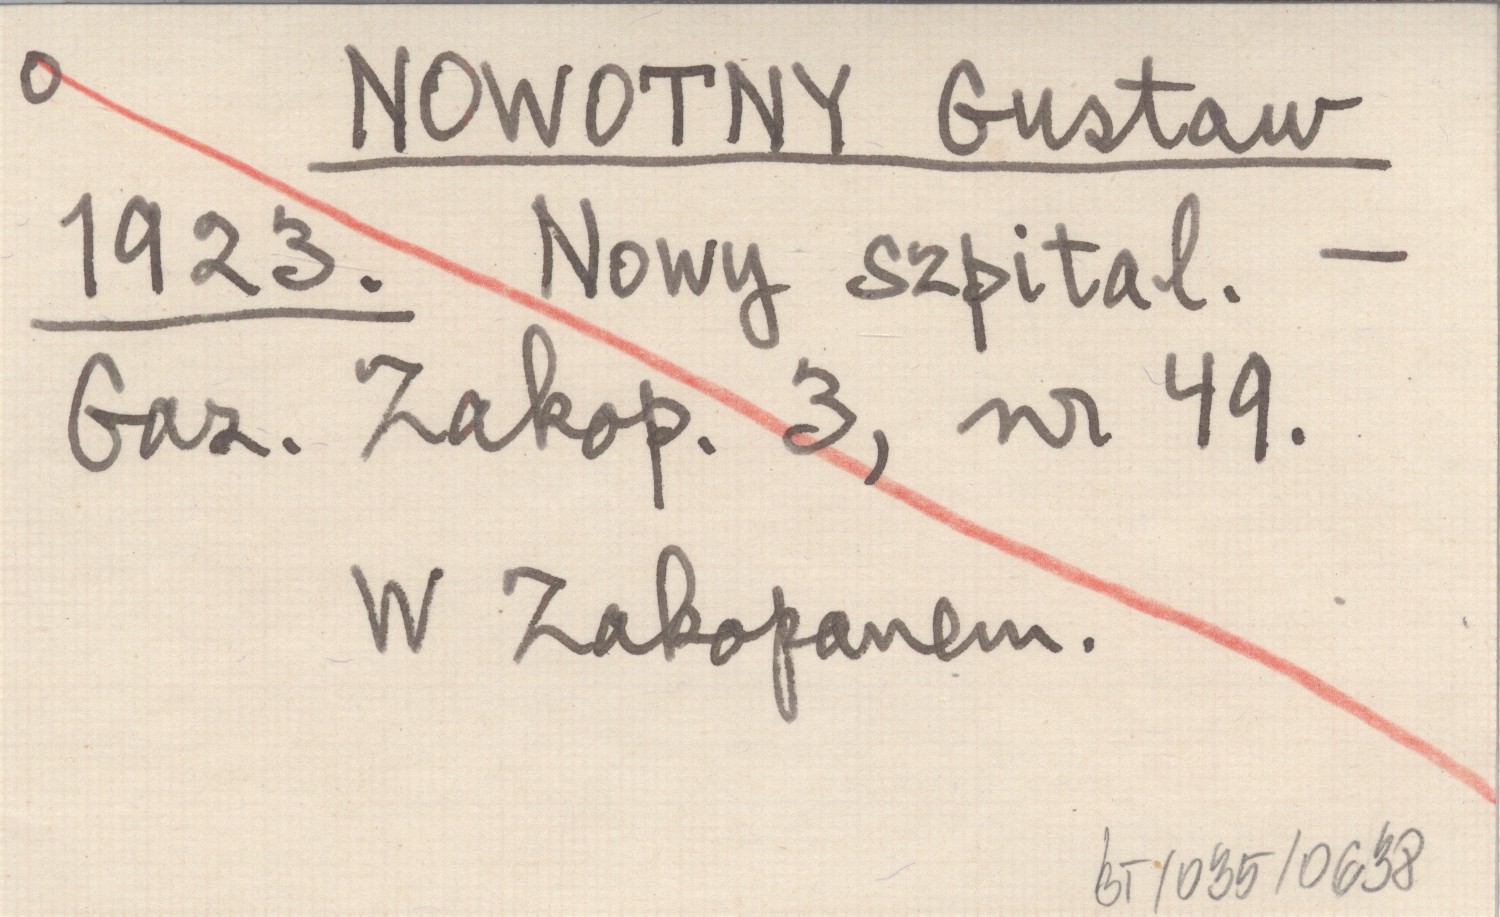 O NOWOTNY Gustaw
1923. Nowy szpital. —
Gaz. Zakop. 3, nr 49.
W Zakopanem.
BT/035/0638